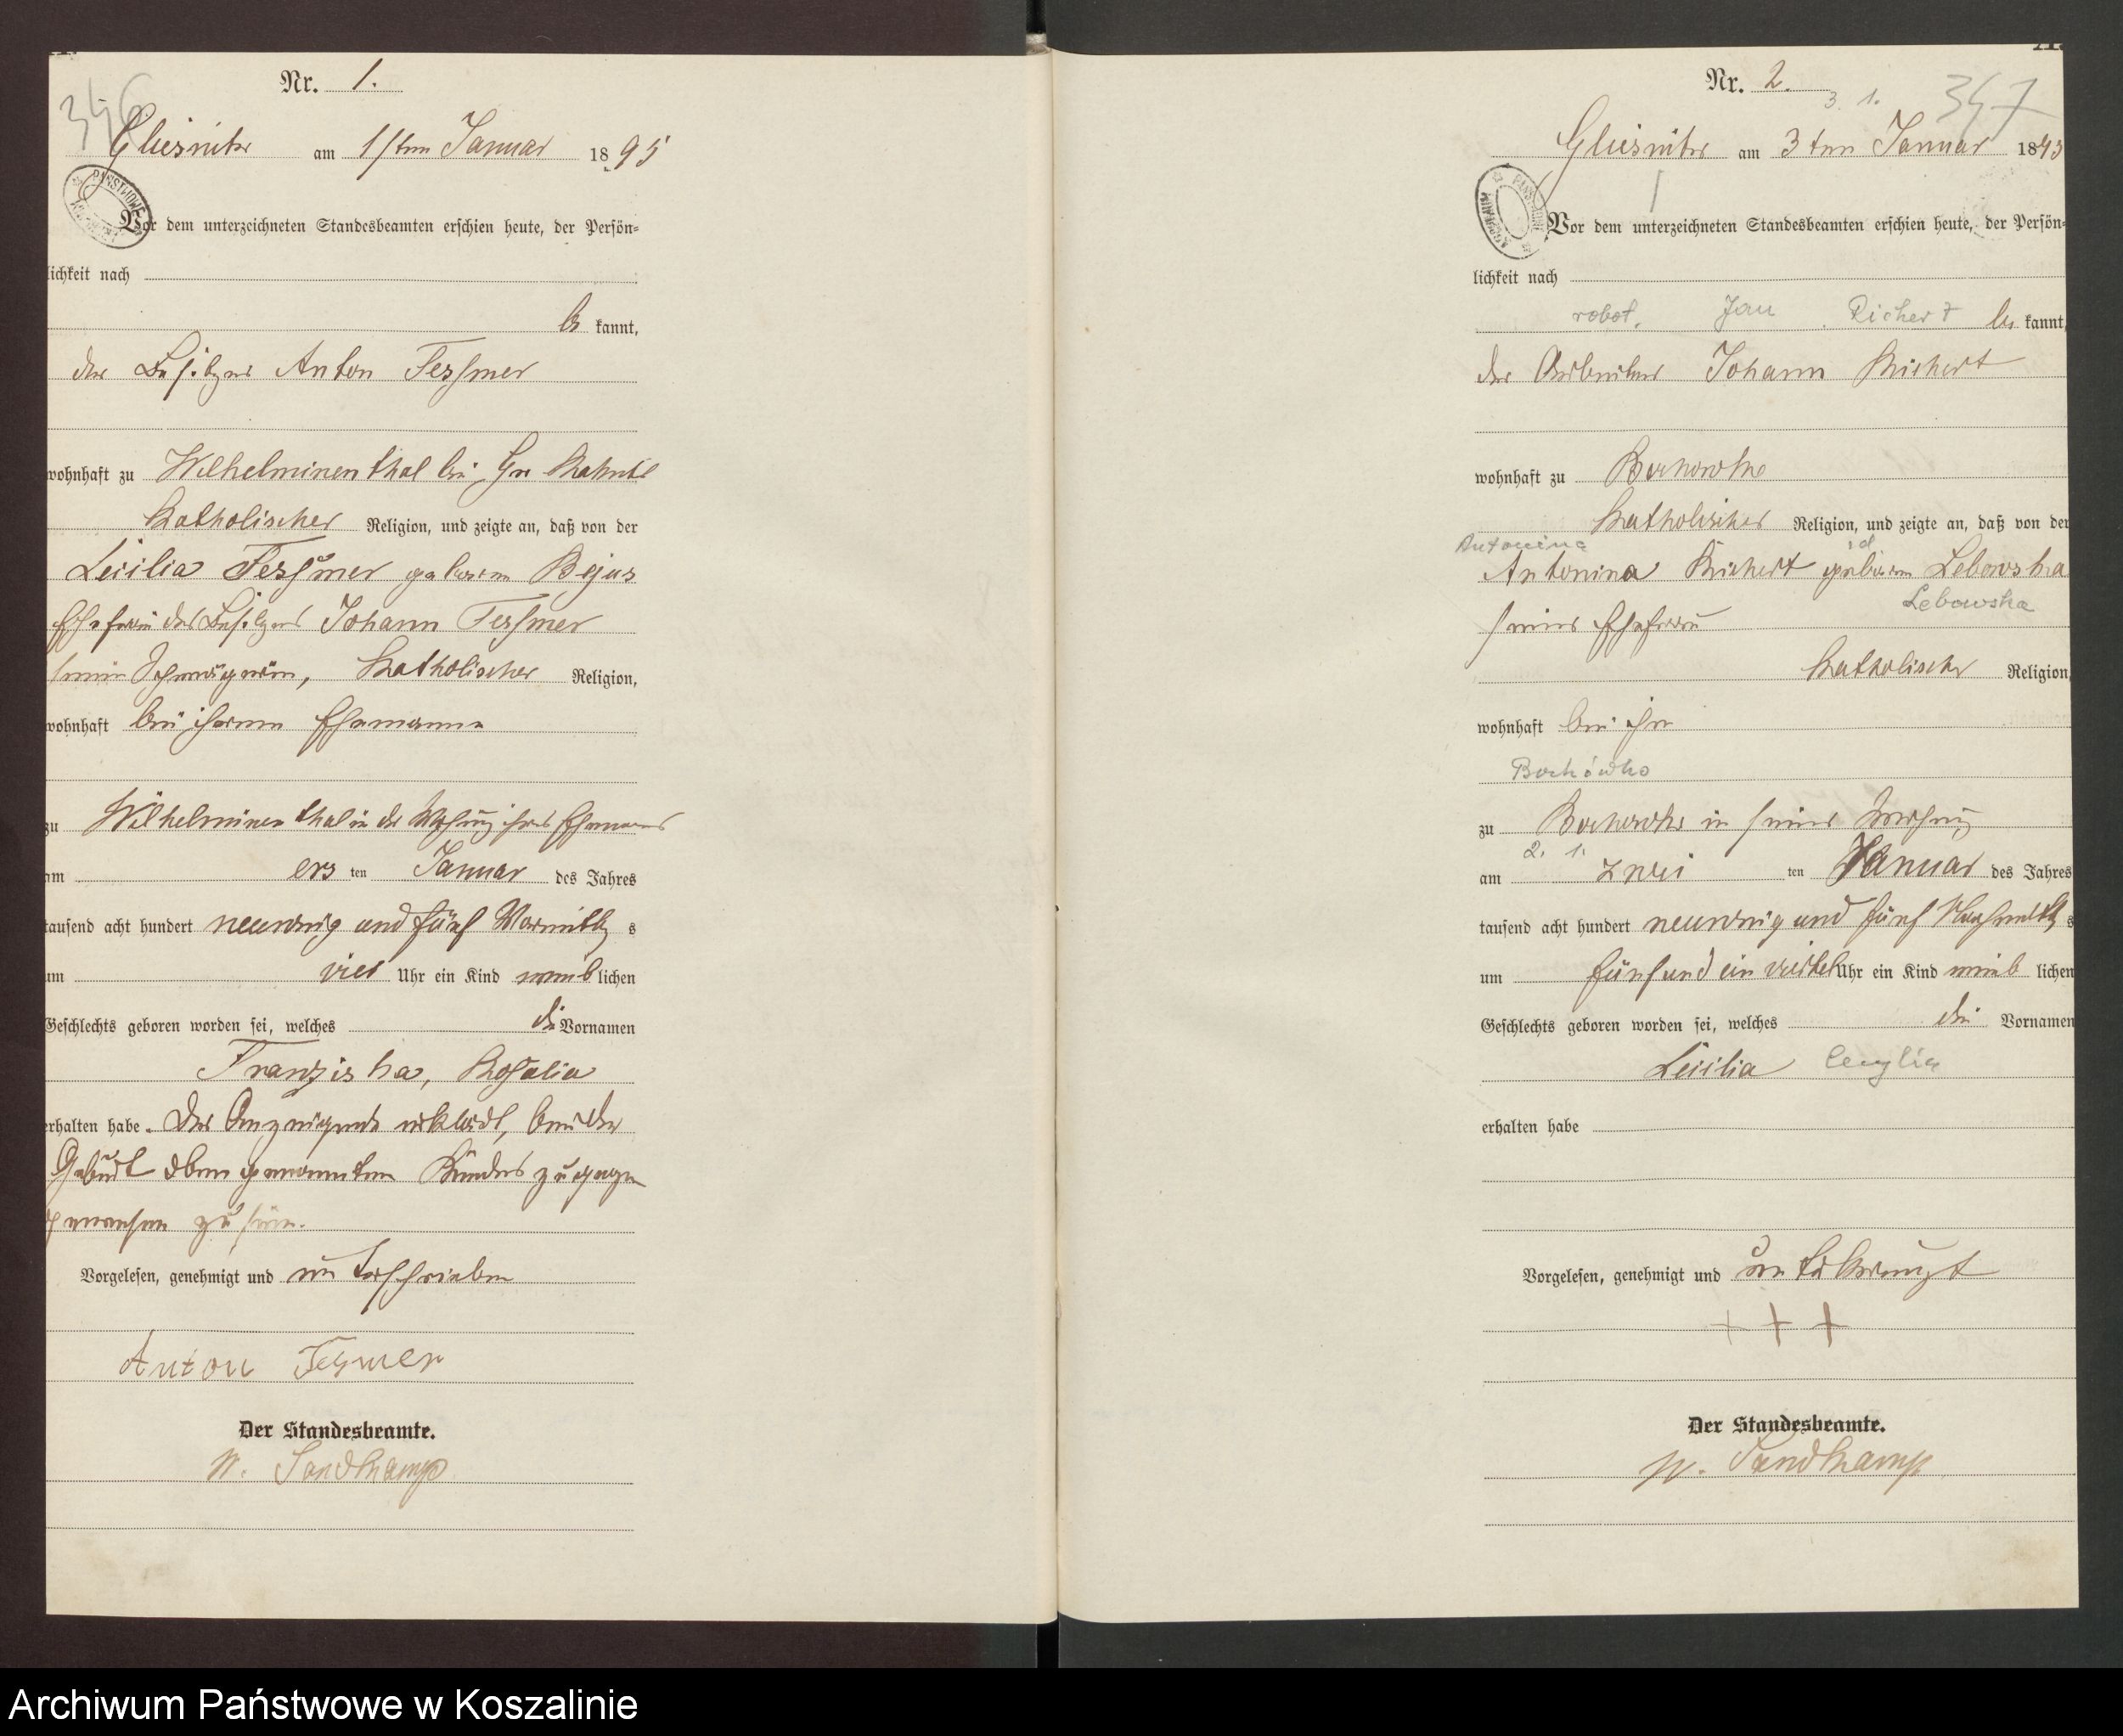 Nr. 1.
346
Gliesnitz am 1sten Januar 1895
Vor dem unterzeichneten Standesbeamten erschien heute, der Persön-
lichkeit nach
be kannt,
der Besitzer Anton Tessmer
wohnhaft zu Wilhelminenthal bei Gr.
Katholischer Religion, und zeigte an, daß von der
Cecilia Tessmer geborene
Ehefrau des Besitzers Johann Tessmer
seine Schwägerin, Katholischer Religion,
wohnhaft bei ihrem Ehemanne
zu Wilhelminenthal in der Wohnung ihres Ehemannes
am ers ten Januar des Jahres
tausend acht hundert neunzig und fünf Vormittag s
um vier Uhr ein Kind weib lichen
Geschlechts geboren worden sei, welches die Vornamen
Franziska, Rosalia
erhalten habe. Der Anzeigende erklärt, bei der
Geburt oben genannten Kindes zugegen
gewesen zu sein.
Vorgelesen, genehmigt und unterschrieben
Anton Tesmer
Der Standesbeamte.
W. Sandkamp
Nr. 2.
3. 1. 347
Gliesnitz am 3ten Januar 1895
Vor dem unterzeichneten Standesbeamten erschien heute, der Persön-
lichkeit nach
robot. Jan Richert be kannt,
der Arbeiter Johann Richert
wohnhaft zu Borkowke
Katholischer Religion, und zeigte an, daß von der
Antonina
Antonina Richert geborene Lebowska
Lebowska
seiner Ehefrau
Katholischer Religion,
wohnhaft bei ihm
zu in seiner Wohnung
2. 1.
am zwei ten Januar des Jahres
tausend acht hundert neunzig und fünf Nachmittag s
um fünf und ein viertel Uhr ein Kind weib lichen
Geschlechts geboren worden sei, welches die Vornamen
Cecilia Cecylia
erhalten habe
Vorgelesen, genehmigt und unterkreuzt
+ + +
Der Standesbeamte.
W. Sandkamp
Archiwum Państwowe w Koszalinie